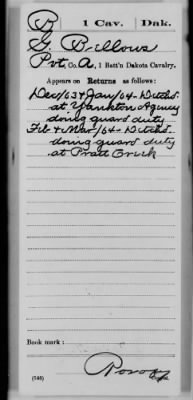 B 1 Cav. Dak.
G. Billows
Pvt., Co. A, 1 Batt'n Dakota Cavalry.
Appears on Returns as follows:
Dec/63 & Jan/64 - Detchd
at Yankton Agency
doing guard duty
Feb & Mar/64 - Detchd
doing guard duty
at Pratt Creek
Book mark:
(546)
Copyist.